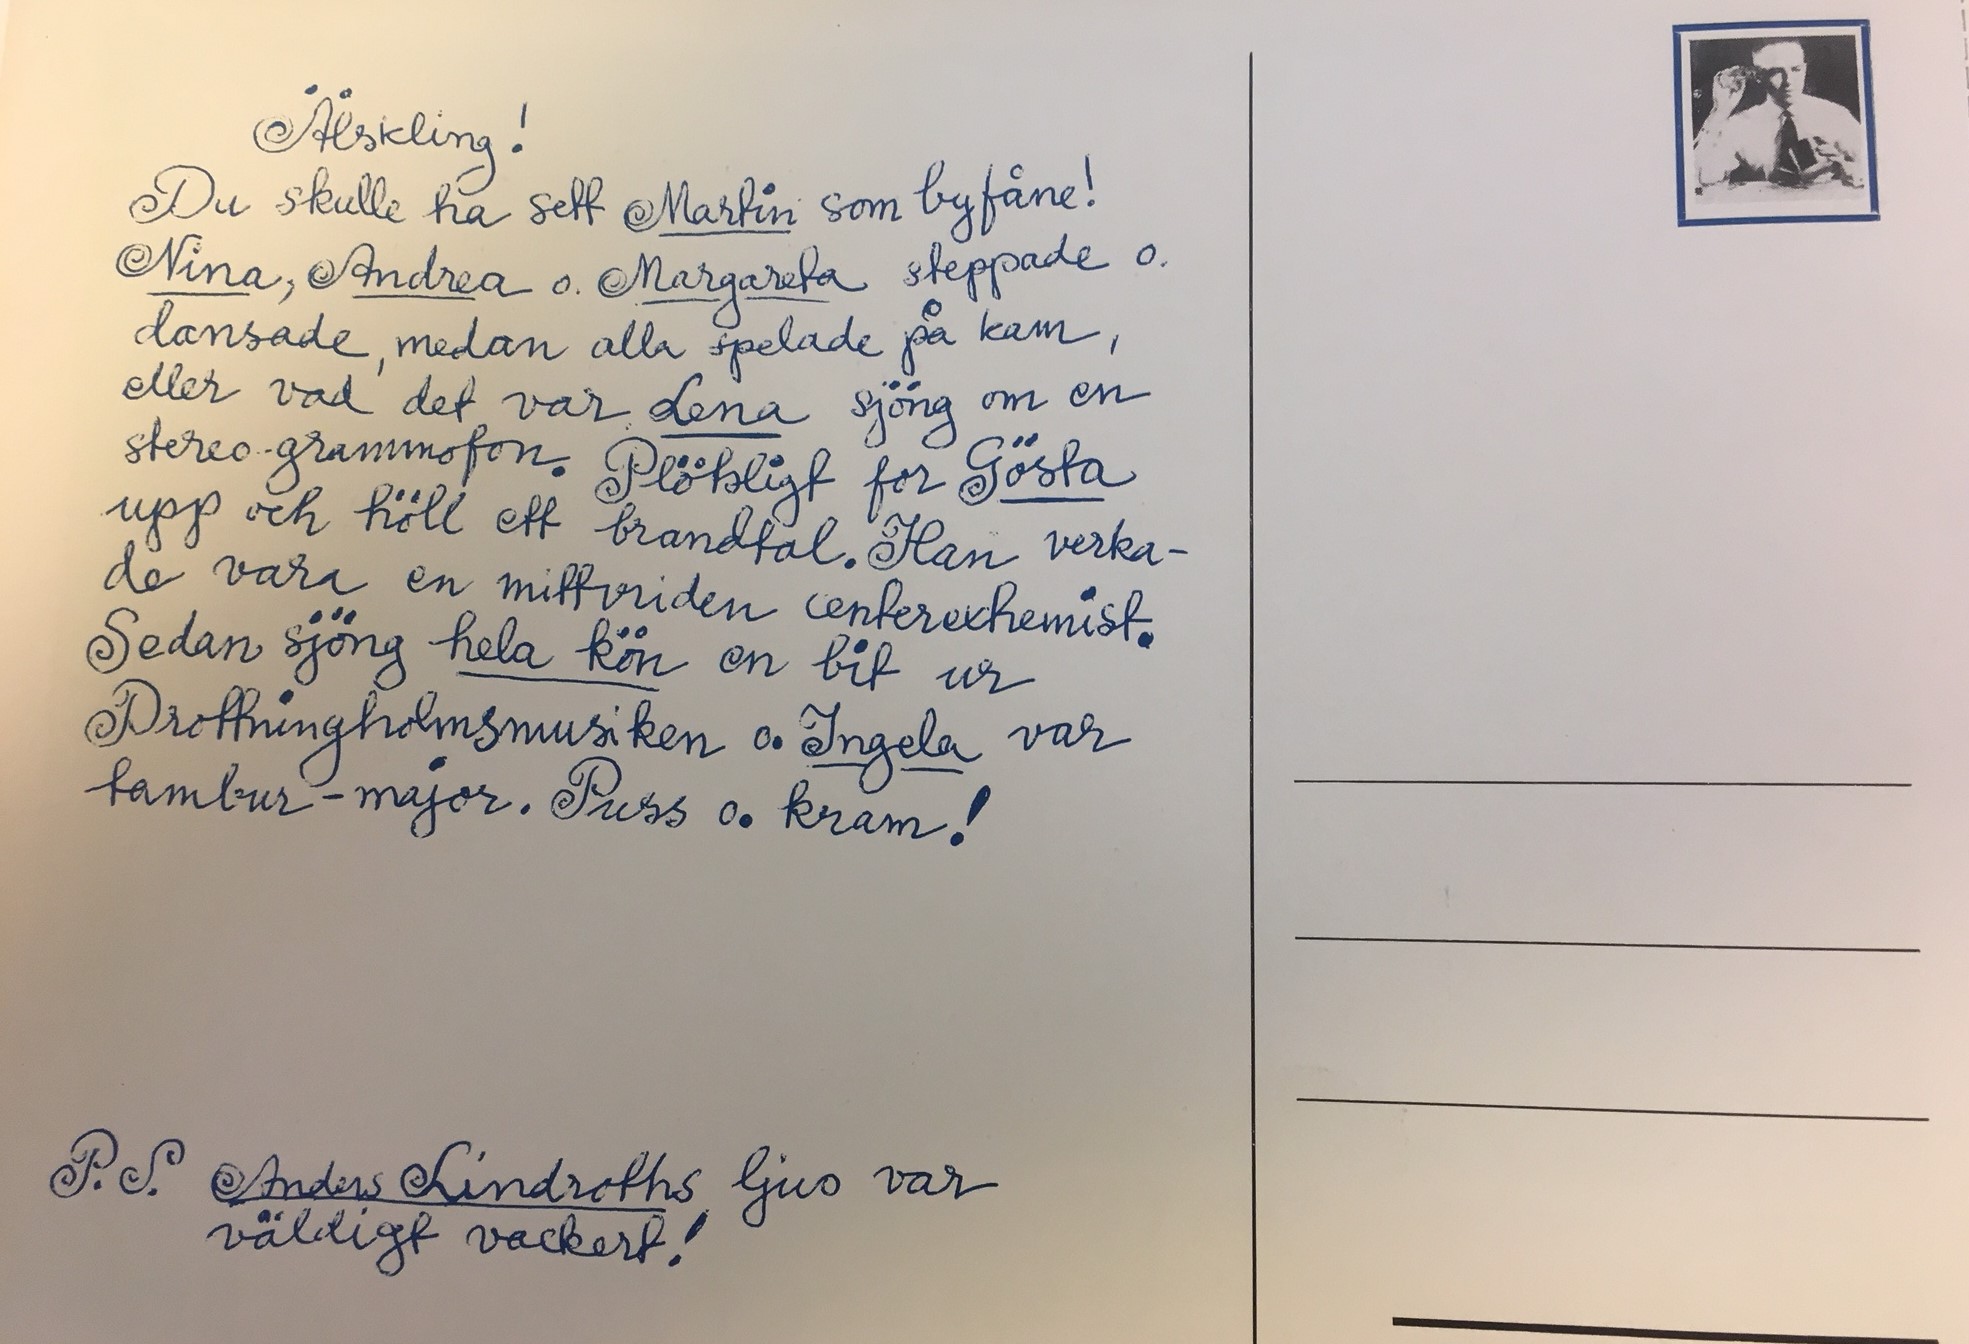 Älskling!
Du skulle ha sett Martin som byfåne!
Nina, Andrea o. Margareta steppade o.
dansade, medan alla spelade på kam,
eller vad det var. Lena sjöng om en
stereo-grammofon. Plötsligt for Gösta
upp och höll ett brandtal. Han verka-
de vara en mittvriden centerexhemist.
Sedan sjöng hela kön en bit ur
Drottningholmsmusiken o. Ingela var
tambur-major. Puss o. kram!
P.S. Anders Lindroths ljus var
väldigt vackert!